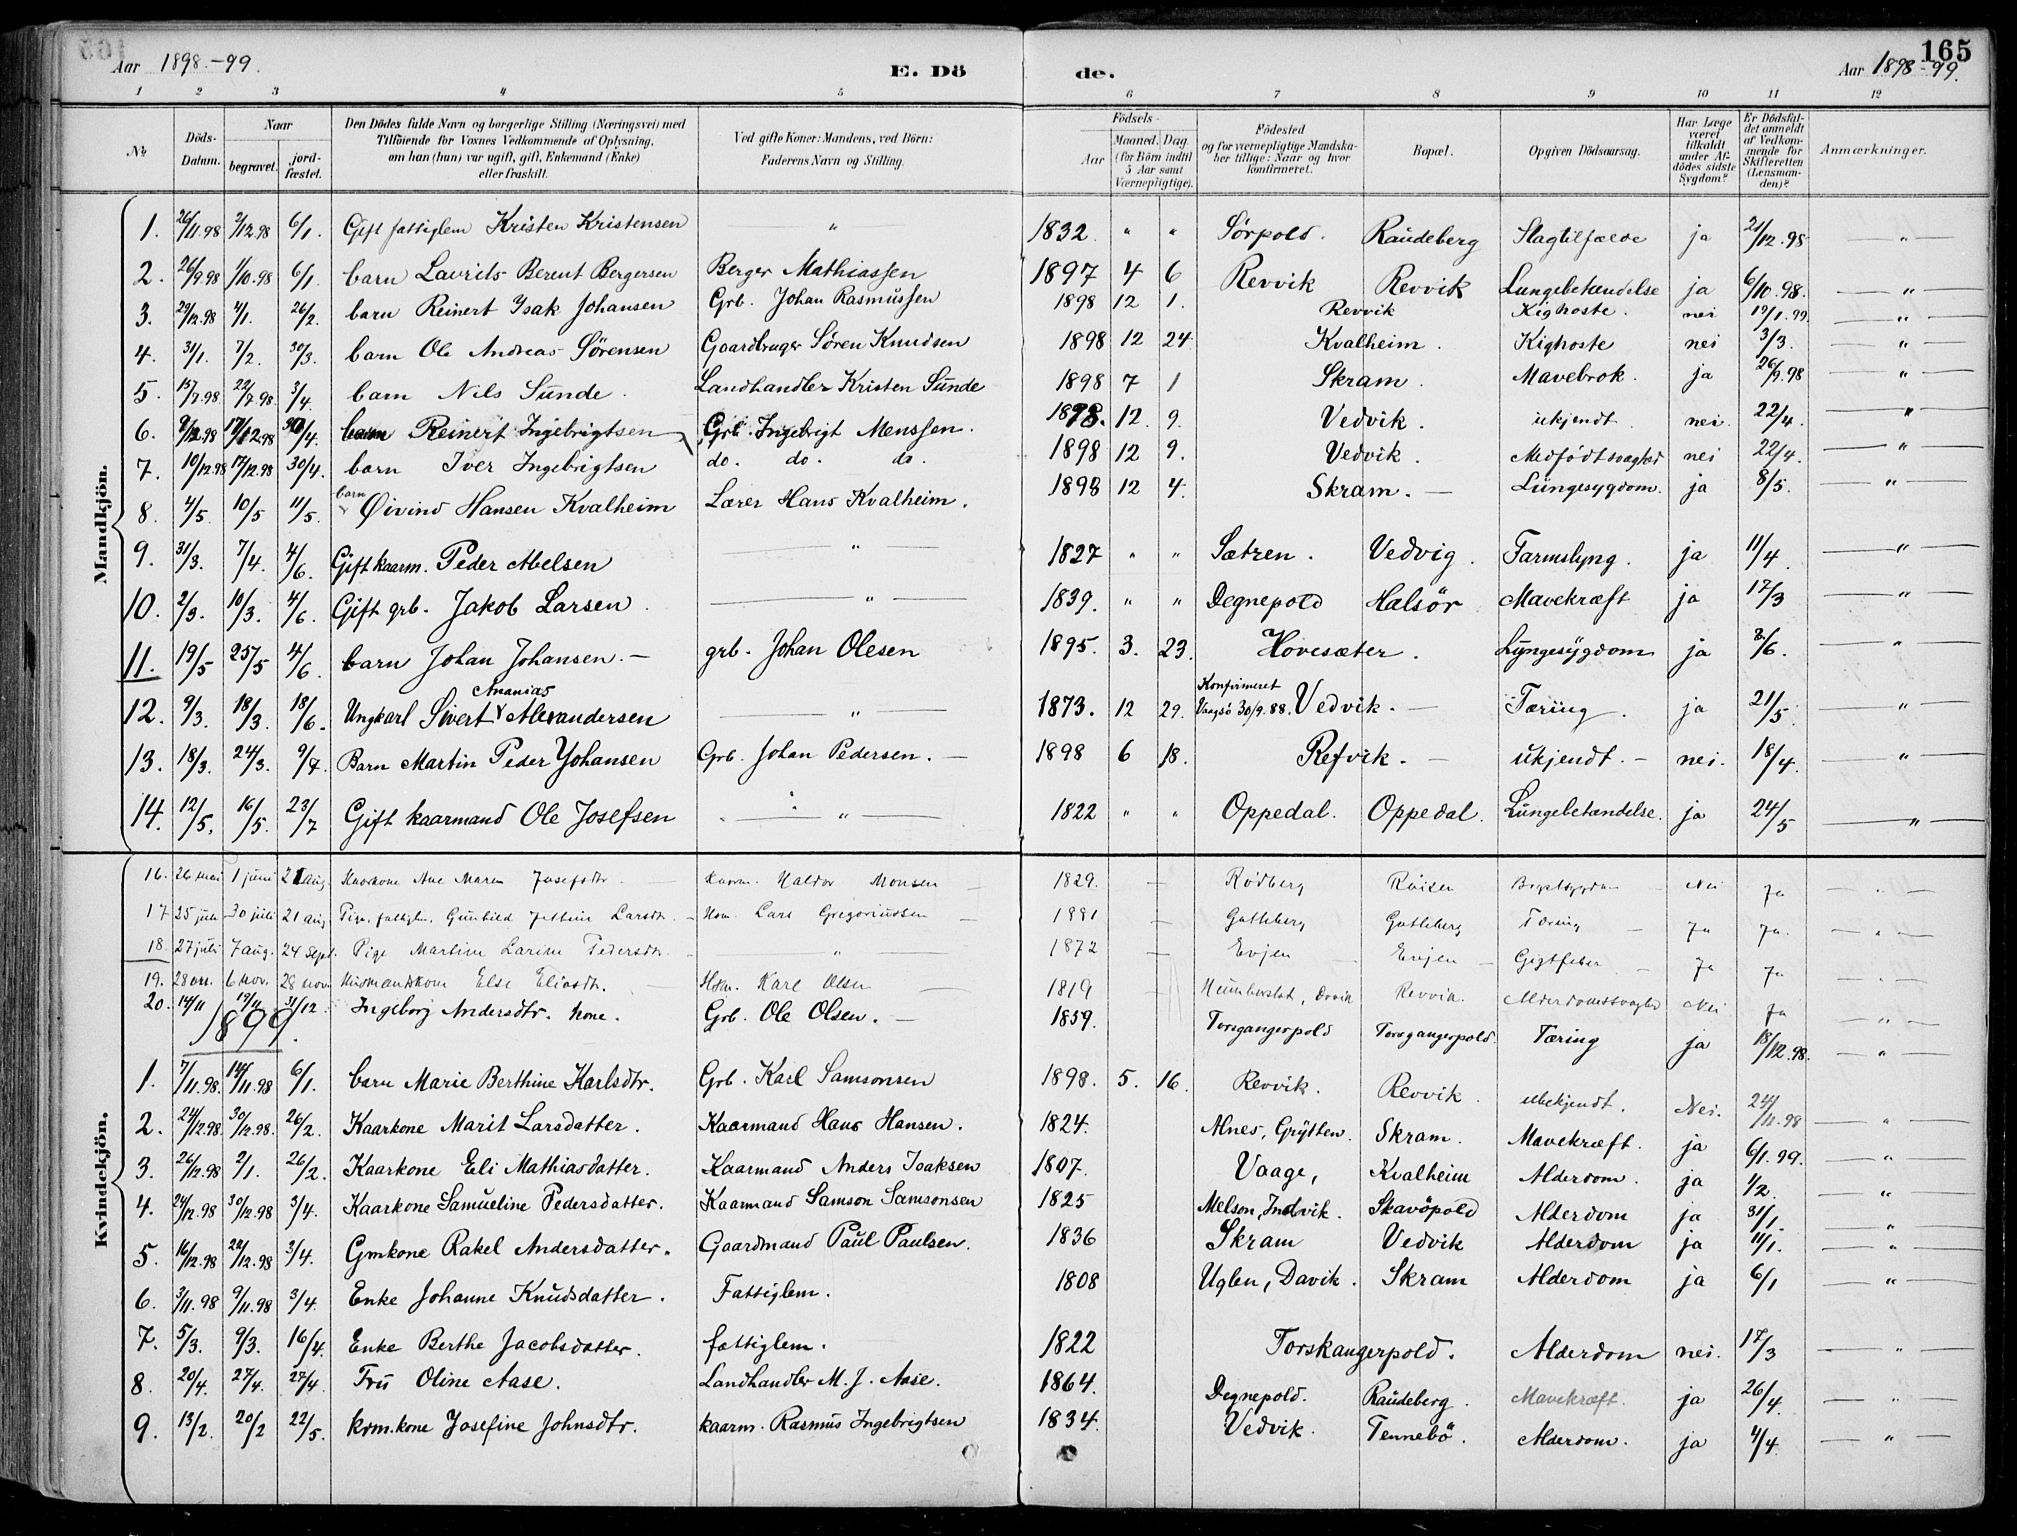 Aar 1898.-99. E. Dö de. Aar 1898-99. 165
1 2 3 4 5 6 7 8 9 10 11 12
№ Döds-Datum. Naar begravet. jord-fæstet. Den Dödes fulde Navn og borgerlige Stilling (Næringsvei) med Tilföiende for Voxnes Vedkommende af Oplysning, om han (hun) var ugift, gift, Enkemand (Enke) eller fraskilt. Ved gifte Koner: Mandens, ved Börn: Faderens Navn og Stilling. Födsels- Aar Maaned. Dag. (for Börn indtil 5 Aar samt Værnepligtige). Födested og for værnepligtige Mandskaber tillige: Naar og hvor konfirmeret. Bopæl. Opgiven Dödsaarsag. Har Læge været tilkaldt under Afdödes sidste Sygdom? Er Dödsfaldet anmeldt af Vedkommende for Skifteretten (Lensmanden)? Anmærkninger.
Mandkjön.
1. 26/11.98 2/12.98 6/1. Gift fattiglem Kristen Kristensen " 1832. " " Sörpold. Raudeberg Slagtilfælde ja 21/12.98 "
2. 26/9.98 1/10.98 6/1. barn Lavrits Berent Bergersen Berger Mathiassen 1897 4 6 Revvik Revvik Lungebetændelse ja 6/10.98. "
3. 29/12.98 4/1. 26/2. barn Reinert Isak Johansen Grb. Johan Rasmussen 1898 12 1. Revvik Kighoste. nei 19/1.99. "
4. 31/1. 7/2. 30/3. barn Ole Andreas Sörensen Gaardbruger Sören Knudsen 1898 12 24 Kvalheim. Kighoste nei 3/3. "
5. 15/7.98 22/7.98 3/4. barn Nils Sunde. Landhandler Kristen Sunde 1898 7 1 Skram. Mavebrok. ja 26/9.98 "
6. 9/12.98 17/12.98 30/4. barn Reinert Ingebrigtsen Grb. Ingebrigt Menssen. 1898. 12. 9. Vedvik. ukjendt nei. 22/4. "
7. 10/12.98 17/12.98 30/4. barn Iver Ingebrigtsen do. do. do. 1898 12 9. Vedvik. Medfödt svaghed nei 22/4. "
8. 4/5. 10/5 11/5. barn Öivind Hansen Kvalheim Lærer Hans Kvalheim. 1898 12 4. Skram. — Lungesygdom. ja 8/5. "
9. 31/3. 7/4. 4/6. Gift kaarm. Peder Abelsen " 1827 " " Sætren. Vedvig. Tarmslyng. ja 11/4. "
10. 2/3. 10/3. 4/6. Gift grb. Jakob Larsen. " 1839. " " Degnepold Halsör Mavekræft ja 17/3 "
11. 19/5 25/5 4/6. barn Johan Johansen. — grb. Johan Olesen 1895. 3. 23. Hovesæter. Lungesygdom ja 8/6. "
12. 9/3. 18/3. 18/6. Ungkarl Sivert Ananias Alexandersen " 1873. 12 29. Konfirmeret Vaagsö 30/9.88. Vedvik. — Tæring. ja 21/5. "
13. 18/3. 24/3. 9/7. Barn Martin Peder Johansen Grb. Johan Pedersen. — 1898 6 18. Refvik. — ukjendt. — nei. 18/4. "
14. 12/5. 16/5. 23/7 Gift kaarmand Ole Josefsen " 1822 " " Oppedal. Oppedal. Lungebetændelse. ja 24/5 "
16. 26 mai 1 juni 21 aug. Kaarkone Ane Maren Josefsdtr. Kaarm. Haldor Monsen 1829. — Rödberg Nei ja "
17 25 juli 30 juli 21 aug Pige, fattiglm. Gunhild Larsdt. Hsm. Lars Gregoriussen — Gotteberg Gotteberg Tæring — ja ja. "
18. 27 juli 7 aug. 24 sept. Pige Martine Larine Pedersdtr. " 1872 — Evjen — Evjen — Gigtfeber — ja ja "
19. 28 6 nov. 28 nov. Husmandskone Else Eliasdt. Hsm. Karl Olsen 1819 — Revvik. Alderdomssvaghed Nei ja "
20. 14/11 19/11 31/12. Ingeborg Andersdtr. kone. Grb. Ole Olsen. — 1859. Torsgangerpold Torsgangerpold Tæring ja 18/12.98. "
1899.
Kvindekjön.
1. 7/11.98. 14/11.98 6/1. barn Marie Berthine Karlsdtr. Grb. Karl Samsonsen 1898. 5. 16. Revvik. Revvik. ubekjendt. Nei. 24/11.98 "
2. 24/12.98. 30/12.98. 26/2. Kaarkone Marit Larsdatter. Kaarmand Hans Hansen. 1824. Alnes, Grytten. Skram. Mavekræft. ja 6/1.99. "
3. 26/12.98 2/1. 26/2. Kaarkone Eli Mathiasdatter. Kaarmand Anders Isaksen 1807. Vaage, Kvalheim Alderdom. ja 1/2. "
4. 24/12.98 30/12.98 3/4. Kaarkone Samueline Pedersdatter. Kaarmand Samson Samsonsen 1825 Melson, Indvik. Skavöpold Alderdom ja 31/1. "
5. 16/12.98 22/12.98 3/4. Gmkone Rakel Andersdatter. Gaardmand Paul Paulsen. 1836 Skram Vedvik Alderdom ja 11/1. "
6. 3/11.98 9/11.98 3/4. Enke Johanne Knudsdatter. Fattiglem. 1808 Uglen, Davik. Skram Alderdom ja 6/1 "
7. 5/3. 9/3. 16/4. Enke Berthe Jacobsdatter. fattiglem. 1822 Torskangerpold. Alderdom nei. 17/3 "
8. 20/4. 27/4. 27/4. Fru Oline Aase. Landhandler M. J. Aase. 1864. Degnepold. Raudeberg. Mavekræft. ja 26/4. "
9. 13/2. 20/2 22/5. krm.kone Josefine Johnsdtr. kaarm. Rasmus Ingebrigtsen 1834. Vedvik. Tennebö. Alderdom. ja 4/4. "